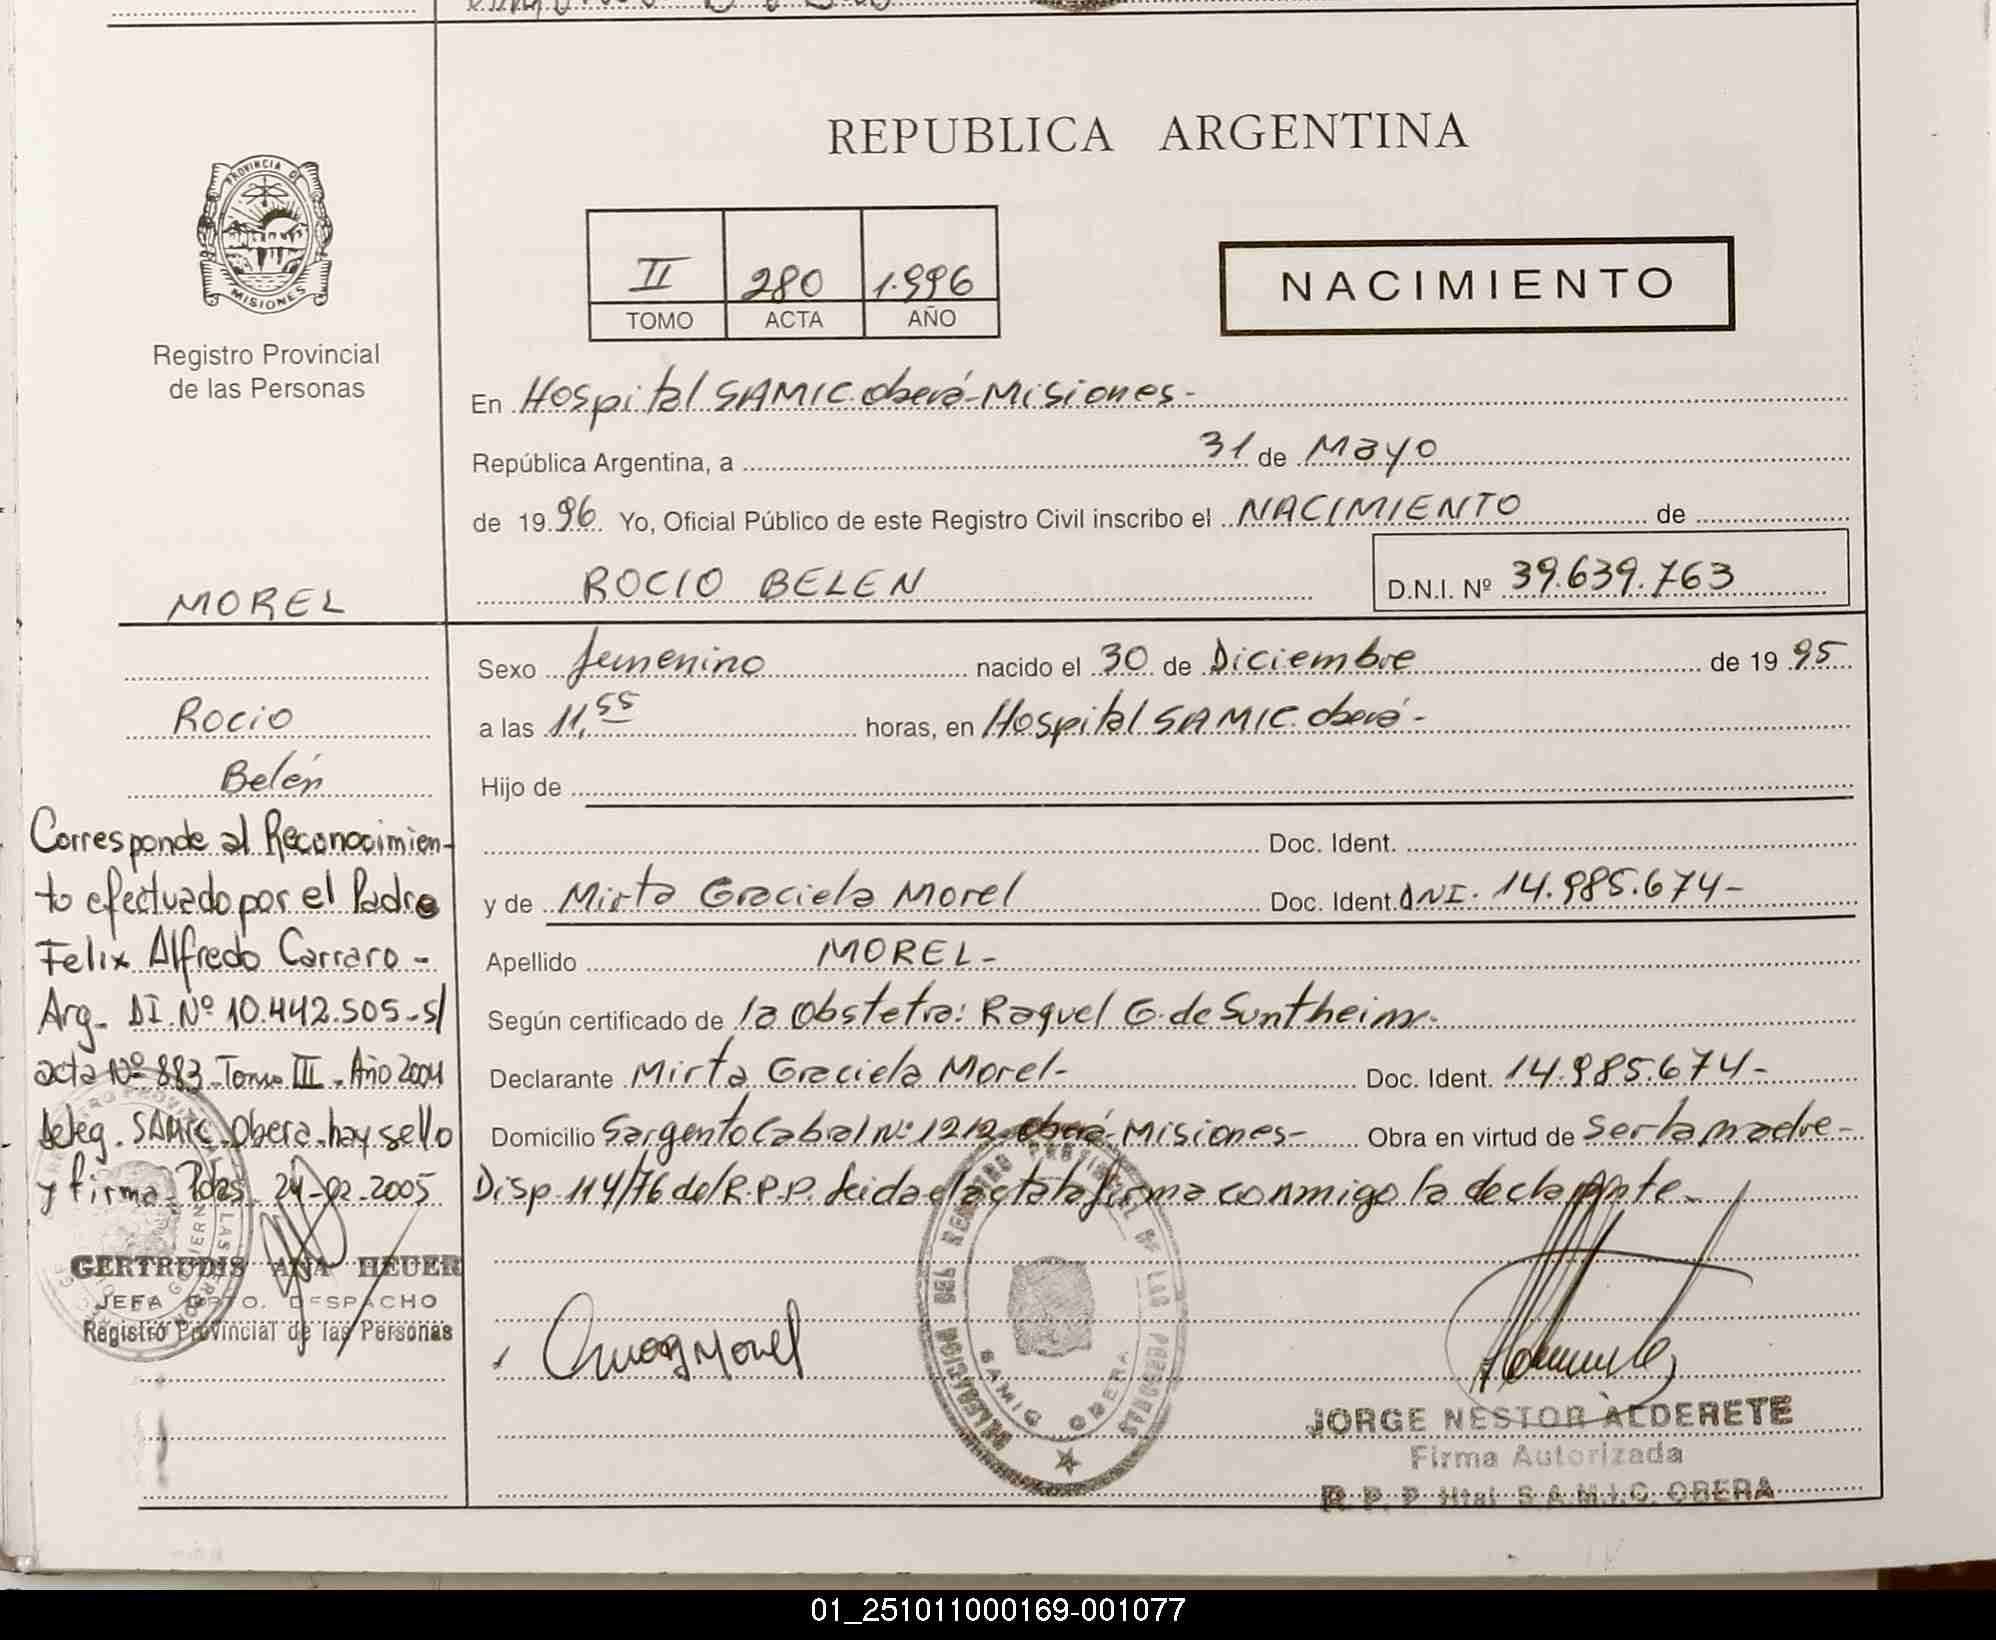 REPUBLICA ARGENTINA
PROVINCIA DE
MISIONES
Registro Provincial
de las Personas
II 280 1.996
TOMO ACTA AÑO
NACIMIENTO
En Hospital SAMIC. oberá-Misiones-
República Argentina, a 31 de Mayo
de 1996. Yo, Oficial Público de este Registro Civil inscribo el NACIMIENTO de
ROCIO BELEN D.N.I. Nº 39.639.763
Sexo femenino nacido el 30 de Diciembre de 1995
a las 11,55 horas, en Hospital SAMIC. oberá-
Hijo de
Doc. Ident.
y de Mirta Graciela Morel Doc. Ident. DNI. 14.985.674-
Apellido MOREL-
Según certificado de la Obstetra: Raquel G. de Suntheim.
Declarante Mirta Graciela Morel- Doc. Ident. 14.985.674-
Domicilio Sargento Cabral Nº 1212 oberá-Misiones- Obra en virtud de ser la madre-
Disp. 114/76 del R.P.P. Leida el acta la firma conmigo la declarante-
MOREL
Rocio
Belén
Corresponde al Reconocimien-
to efectuado por el Padre
Felix Alfredo Carraro-
Arg- DI. Nº 10.442.505-s/
acta Nº 883-Tomo III-Año 2004
Deleg. SAMIC-Obera-hay sello
y firma-Pdas 24-02-2005
GERTRUDIS ANA HEUER
JEFA DPTO. DESPACHO
Registro Provincial de las Personas
Morel
DELEGACION DEL REGISTRO PROVINCIAL DE LAS PERSONAS
SAMIC OBERA
JORGE NESTOR ALDERETE
Firma Autorizada
R. P. P. Htal S.A.M.I.C. OBERA
01_251011000169-001077